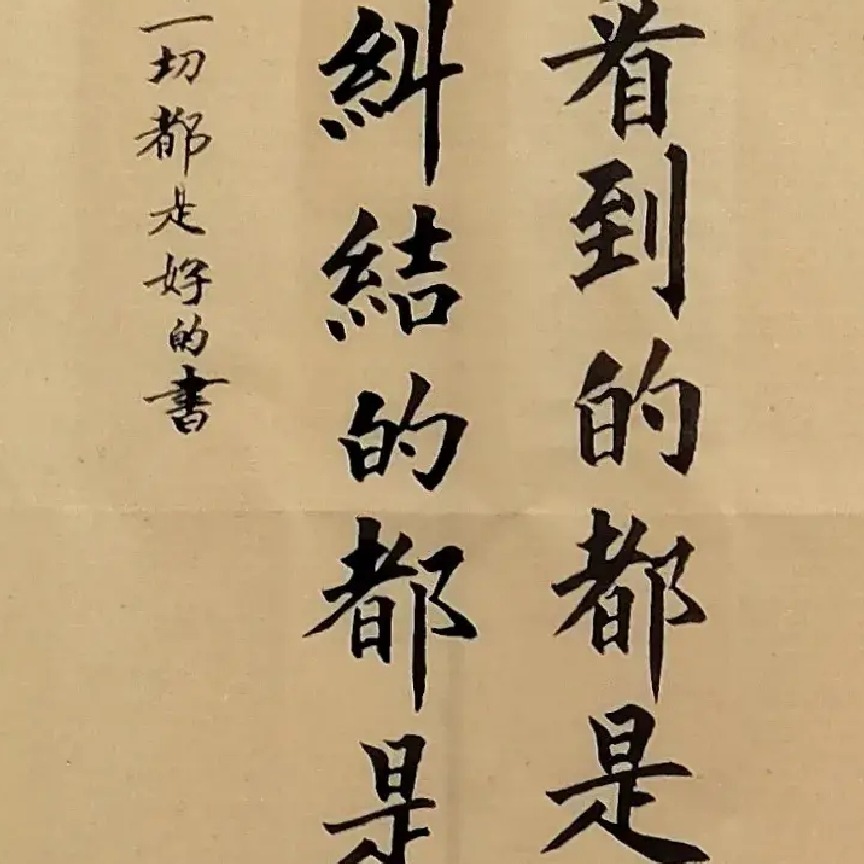 看到的都是
糾結的都是
一切都是好的書